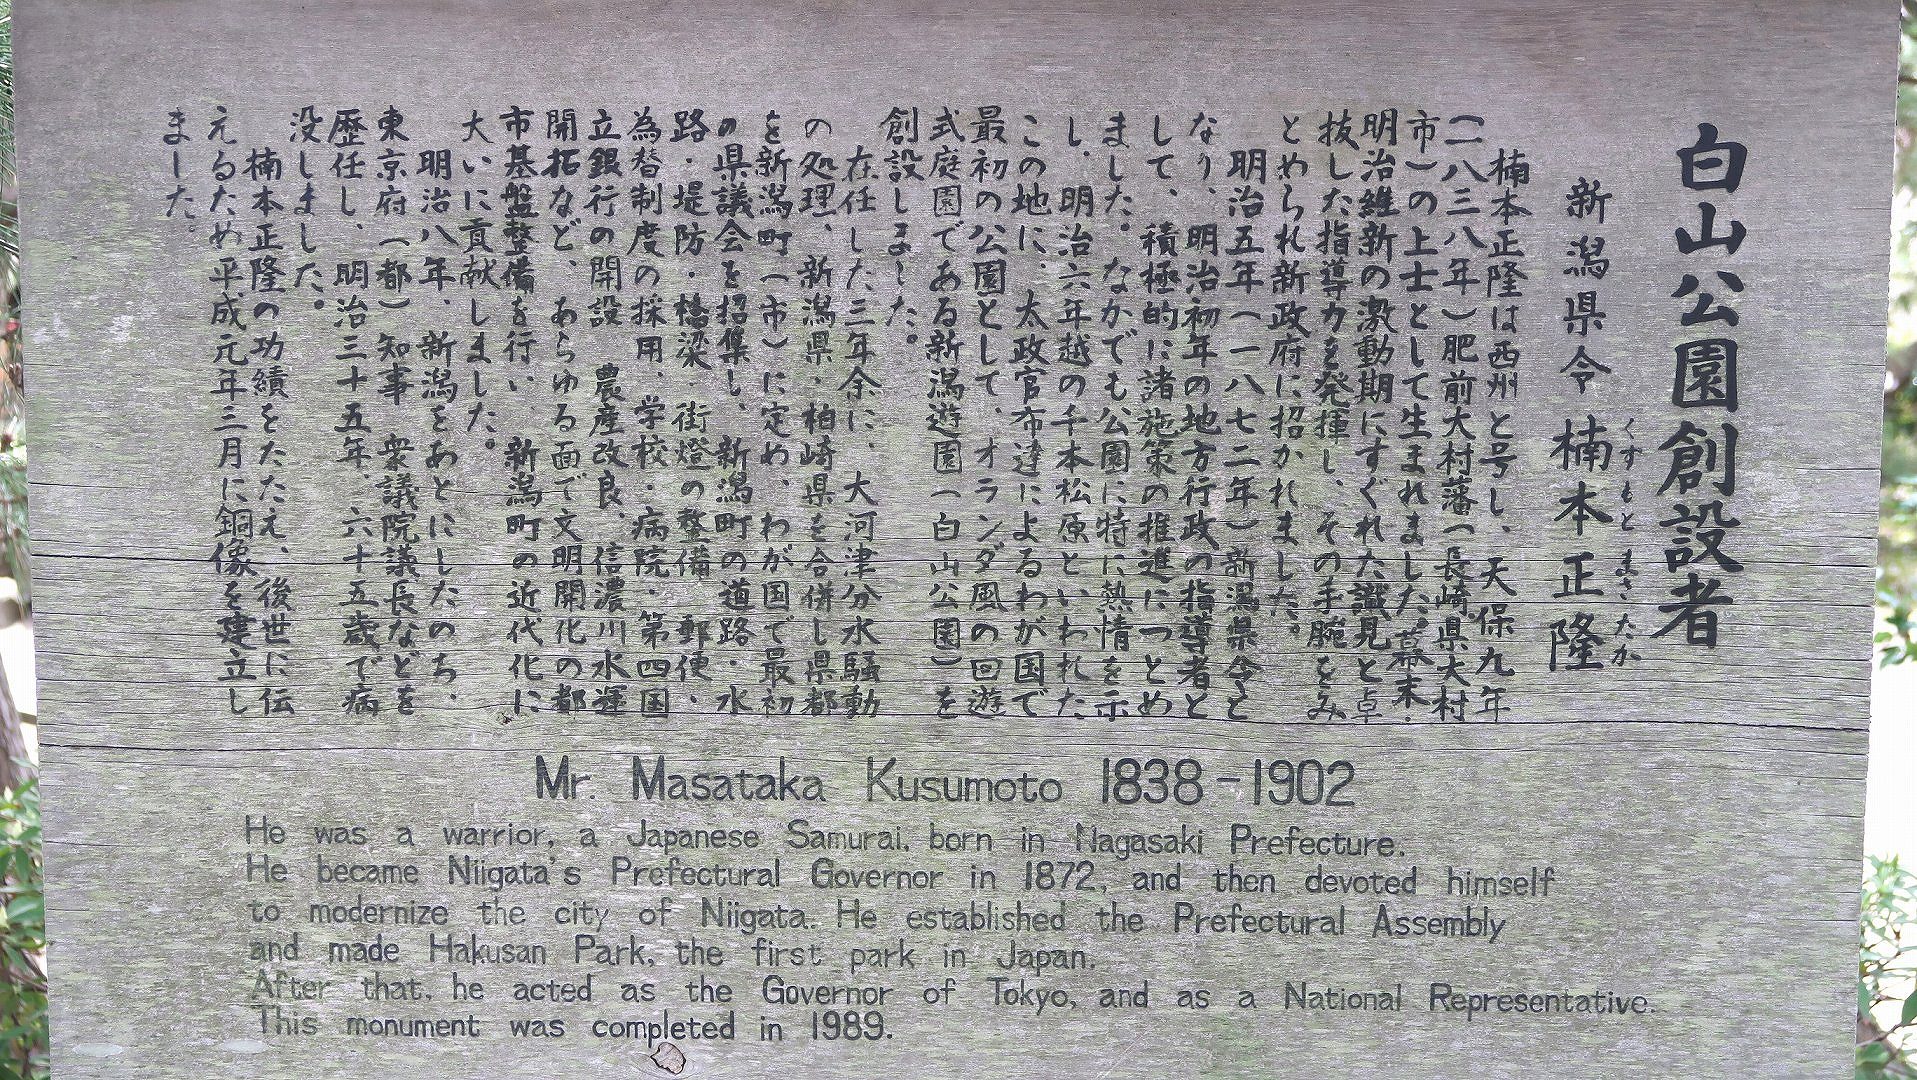 白山公園創設者
新潟県令 楠本正隆
くすもと まさ たか
楠本正隆は西州と号し、天保九年
(一八三八年)肥前大村藩(長崎県大村
市)の上士として生まれました。幕末・
明治維新の激動期にすぐれた識見と卓
抜した指導力を発揮し、その手腕をみ
とめられ新政府に招かれました。
明治五年(一八七二年)新潟県令と
なり、明治初年の地方行政の指導者と
して、積極的に諸施策の推進につとめ
ました。なかでも公園に特に熱情を示
し、明治六年越の千本松原といわれた
この地に、太政官布達によるわが国で
最初の公園として、オランダ風の回遊
式庭園である新潟遊園(白山公園)を
創設しました。
在任した三年余に、大河津分水騒動
の処理、新潟県・柏崎県を合併し県都
を新潟町(市)に定め、わが国で最初
の県議会を招集し、新潟町の道路・水
路・堤防・橋梁・街燈の整備、郵便、
為替制度の採用、学校・病院・第四国
立銀行の開設、農産改良、信濃川水運
開拓など、あらゆる面で文明開化の都
市基盤整備を行い、新潟町の近代化に
大いに貢献しました。
明治八年、新潟をあとにしたのち、
東京府(都)知事、衆議院議長などを
歴任し、明治三十五年、六十五歳で病
没しました。
楠本正隆の功績をたたえ、後世に伝
えるため平成元年三月に銅像を建立し
ました。
Mr. Masataka Kusumoto 1838-1902
He was a warrior, a Japanese Samurai, born in Nagasaki Prefecture.
He became Niigata's Prefectural Governor in 1872, and then devoted himself
to modernize the city of Niigata. He established the Prefectural Assembly
and made Hakusan Park, the first park in Japan.
After that, he acted as the Governor of Tokyo, and as a National Representative.
This monument was completed in 1989.